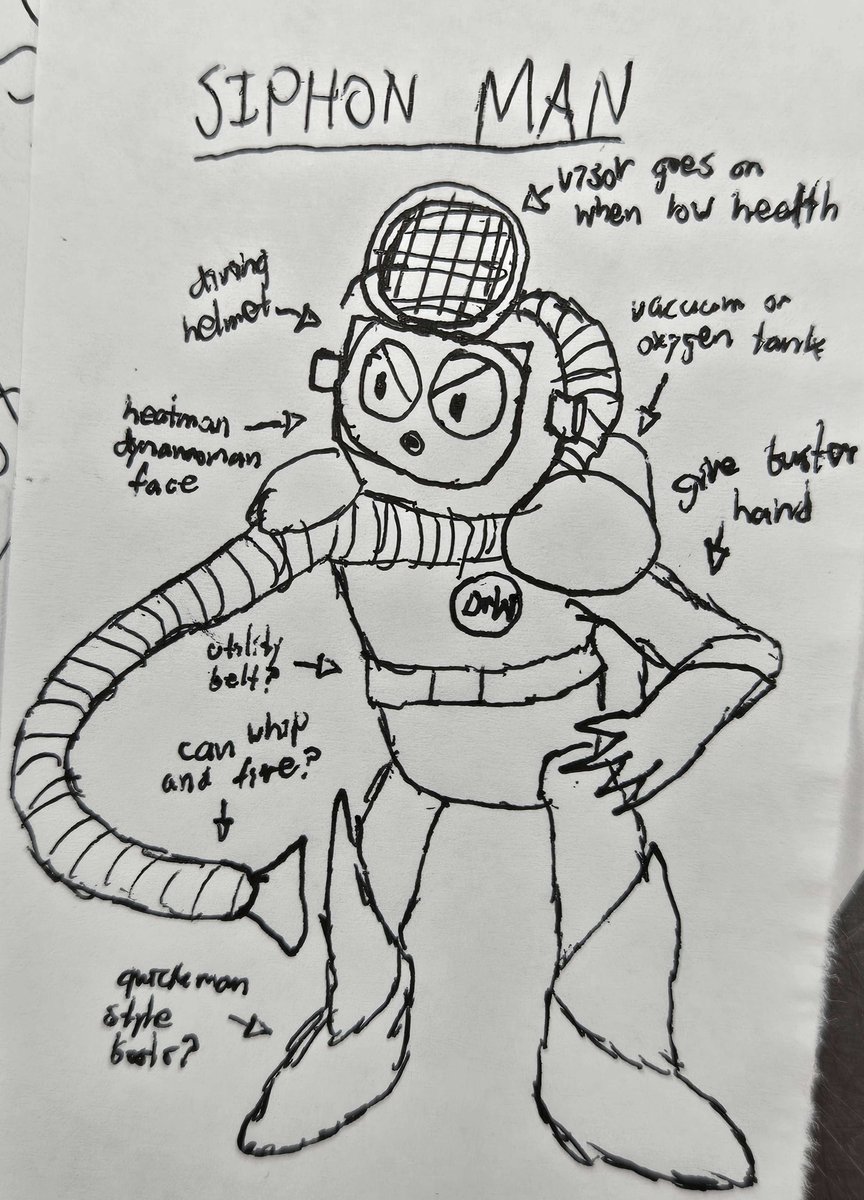 SIPHON MAN
visor goes on
when low health
diving
helmet
vacuum or
oxygen tank
heatman
dynawoman
face
give buster
hand
DrW
utility
belt?
can whip
and fire?
quickman
style
boots?